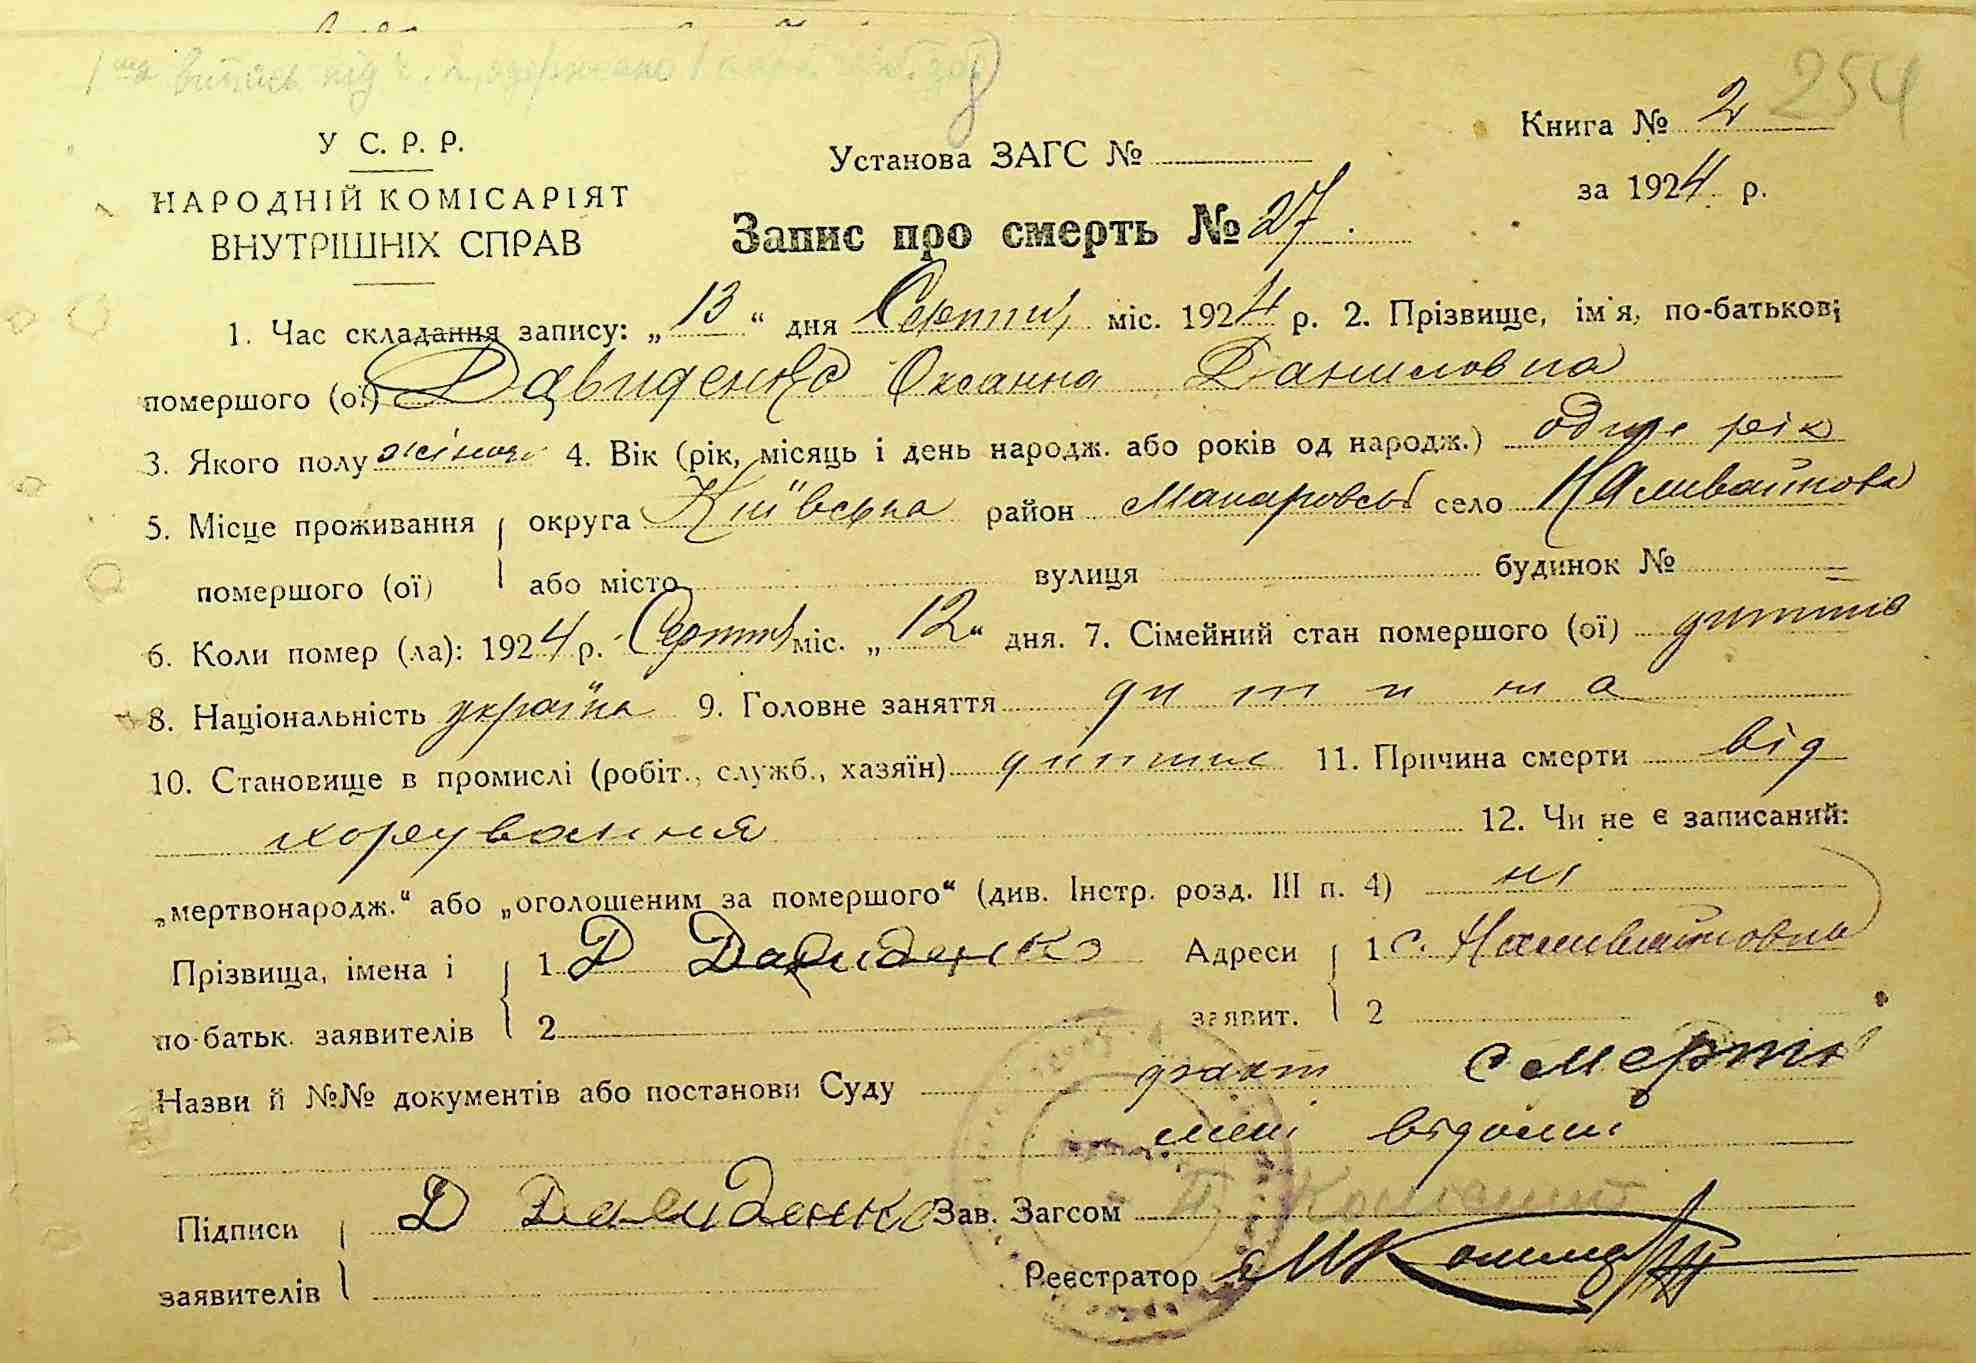 254
У С. Р. Р.
НАРОДНІЙ КОМІСАРІЯТ
ВНУТРІШНІХ СПРАВ
Установа ЗАГС №
Книга № 2
за 1924 р.
Запис про смерть № 27.
1. Час складання запису: „13“ дня Серпня міс. 1924 р. 2. Прізвище, ім'я, по-батькові
помершого (ої) Давиденко Оксанна Даниловна
3. Якого полу жіноч 4. Вік (рік, місяць і день народж. або років од народж.) один рік
5. Місце проживання округа Київська район Макаровськ село Наливайковка
помершого (ої) або місто вулиця будинок №
6. Коли помер (ла): 1924 р. Серпня міс. „12“ дня. 7. Сімейний стан помершого (ої) дитина
8. Національність україка 9. Головне заняття дитина
10. Становище в промислі (робіт., служб., хазяїн) дитина 11. Причина смерти від
хорування 12. Чи не є записаний:
„мертвонародж.“ або „оголошеним за помершого“ (див. Інстр. розд. III п. 4) ні
Прізвища, імена і 1 Д Давиденко Адреси 1 с. Наливайковка
по-батьк. заявителів 2 заявит. 2
Назви й №№ документів або постанови Суду факт смерті
мені відомий
Підписи Д Давиденко Зав. Загсом
заявителів Реєстратор